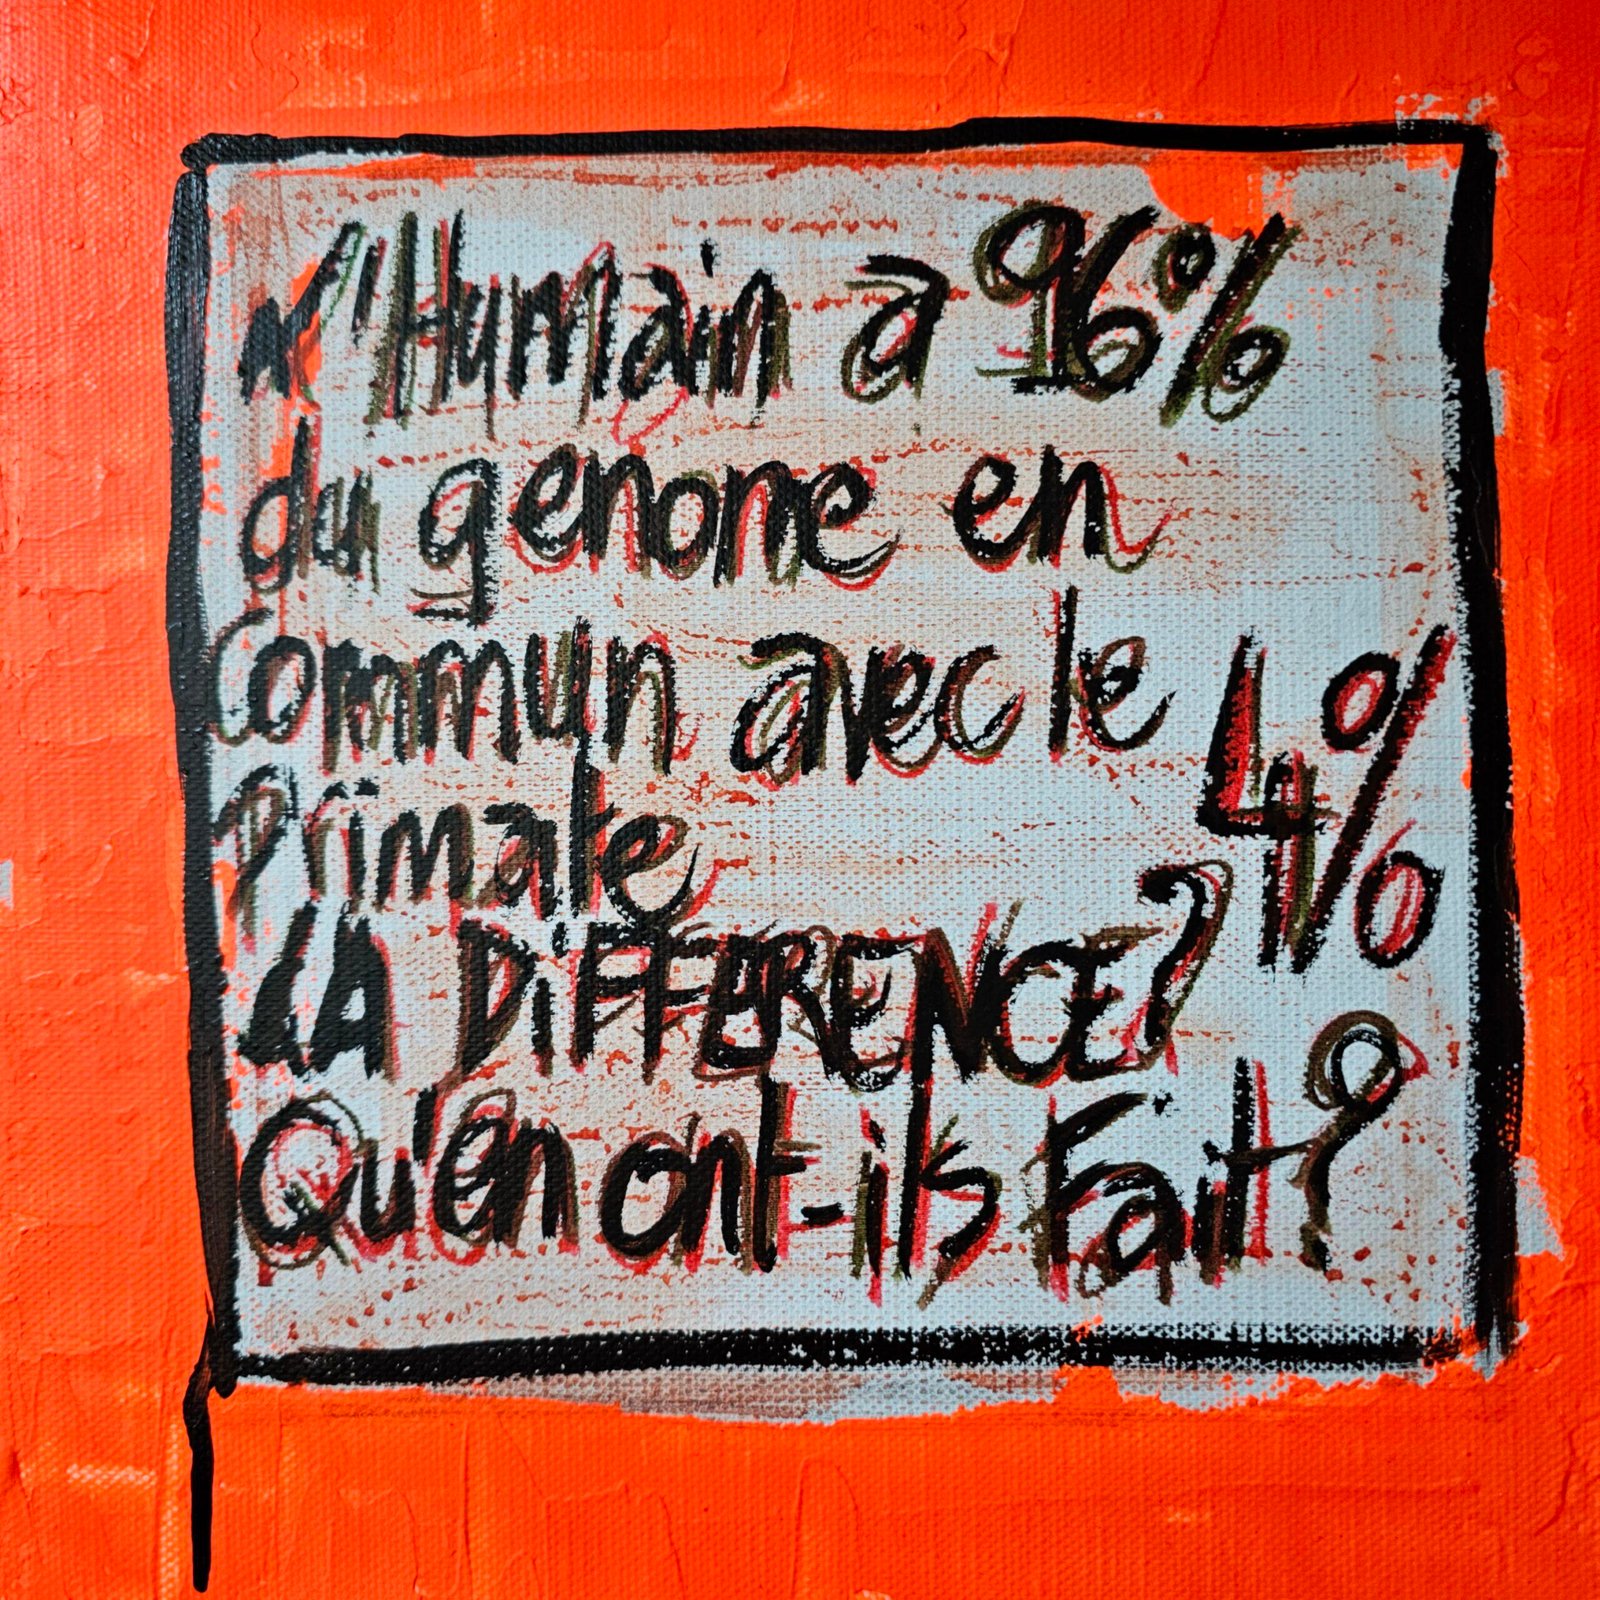 l'Humain a 96%
du génome en
Commun avec le
Primate
4%
LA DiFFERENCE?
Qu'en ont-ils Fait?